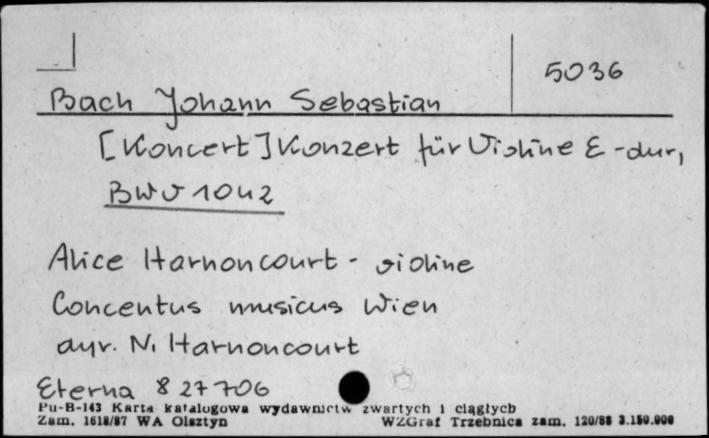 5036
Bach Johann Sebastian
[Koncert] Konzert für Violine E-dur,
BWV 1042
Alice Harnoncourt - violine
Concentus musicus Wien
dyr. N. Harnoncourt
Eterna 8 27 706
Pu-B-143 Karta katalogowa wydawnictw zwartych i ciągłych
Zam. 1618/87 WA Olsztyn WZGraf Trzebnica zam. 120/88 3.150.000